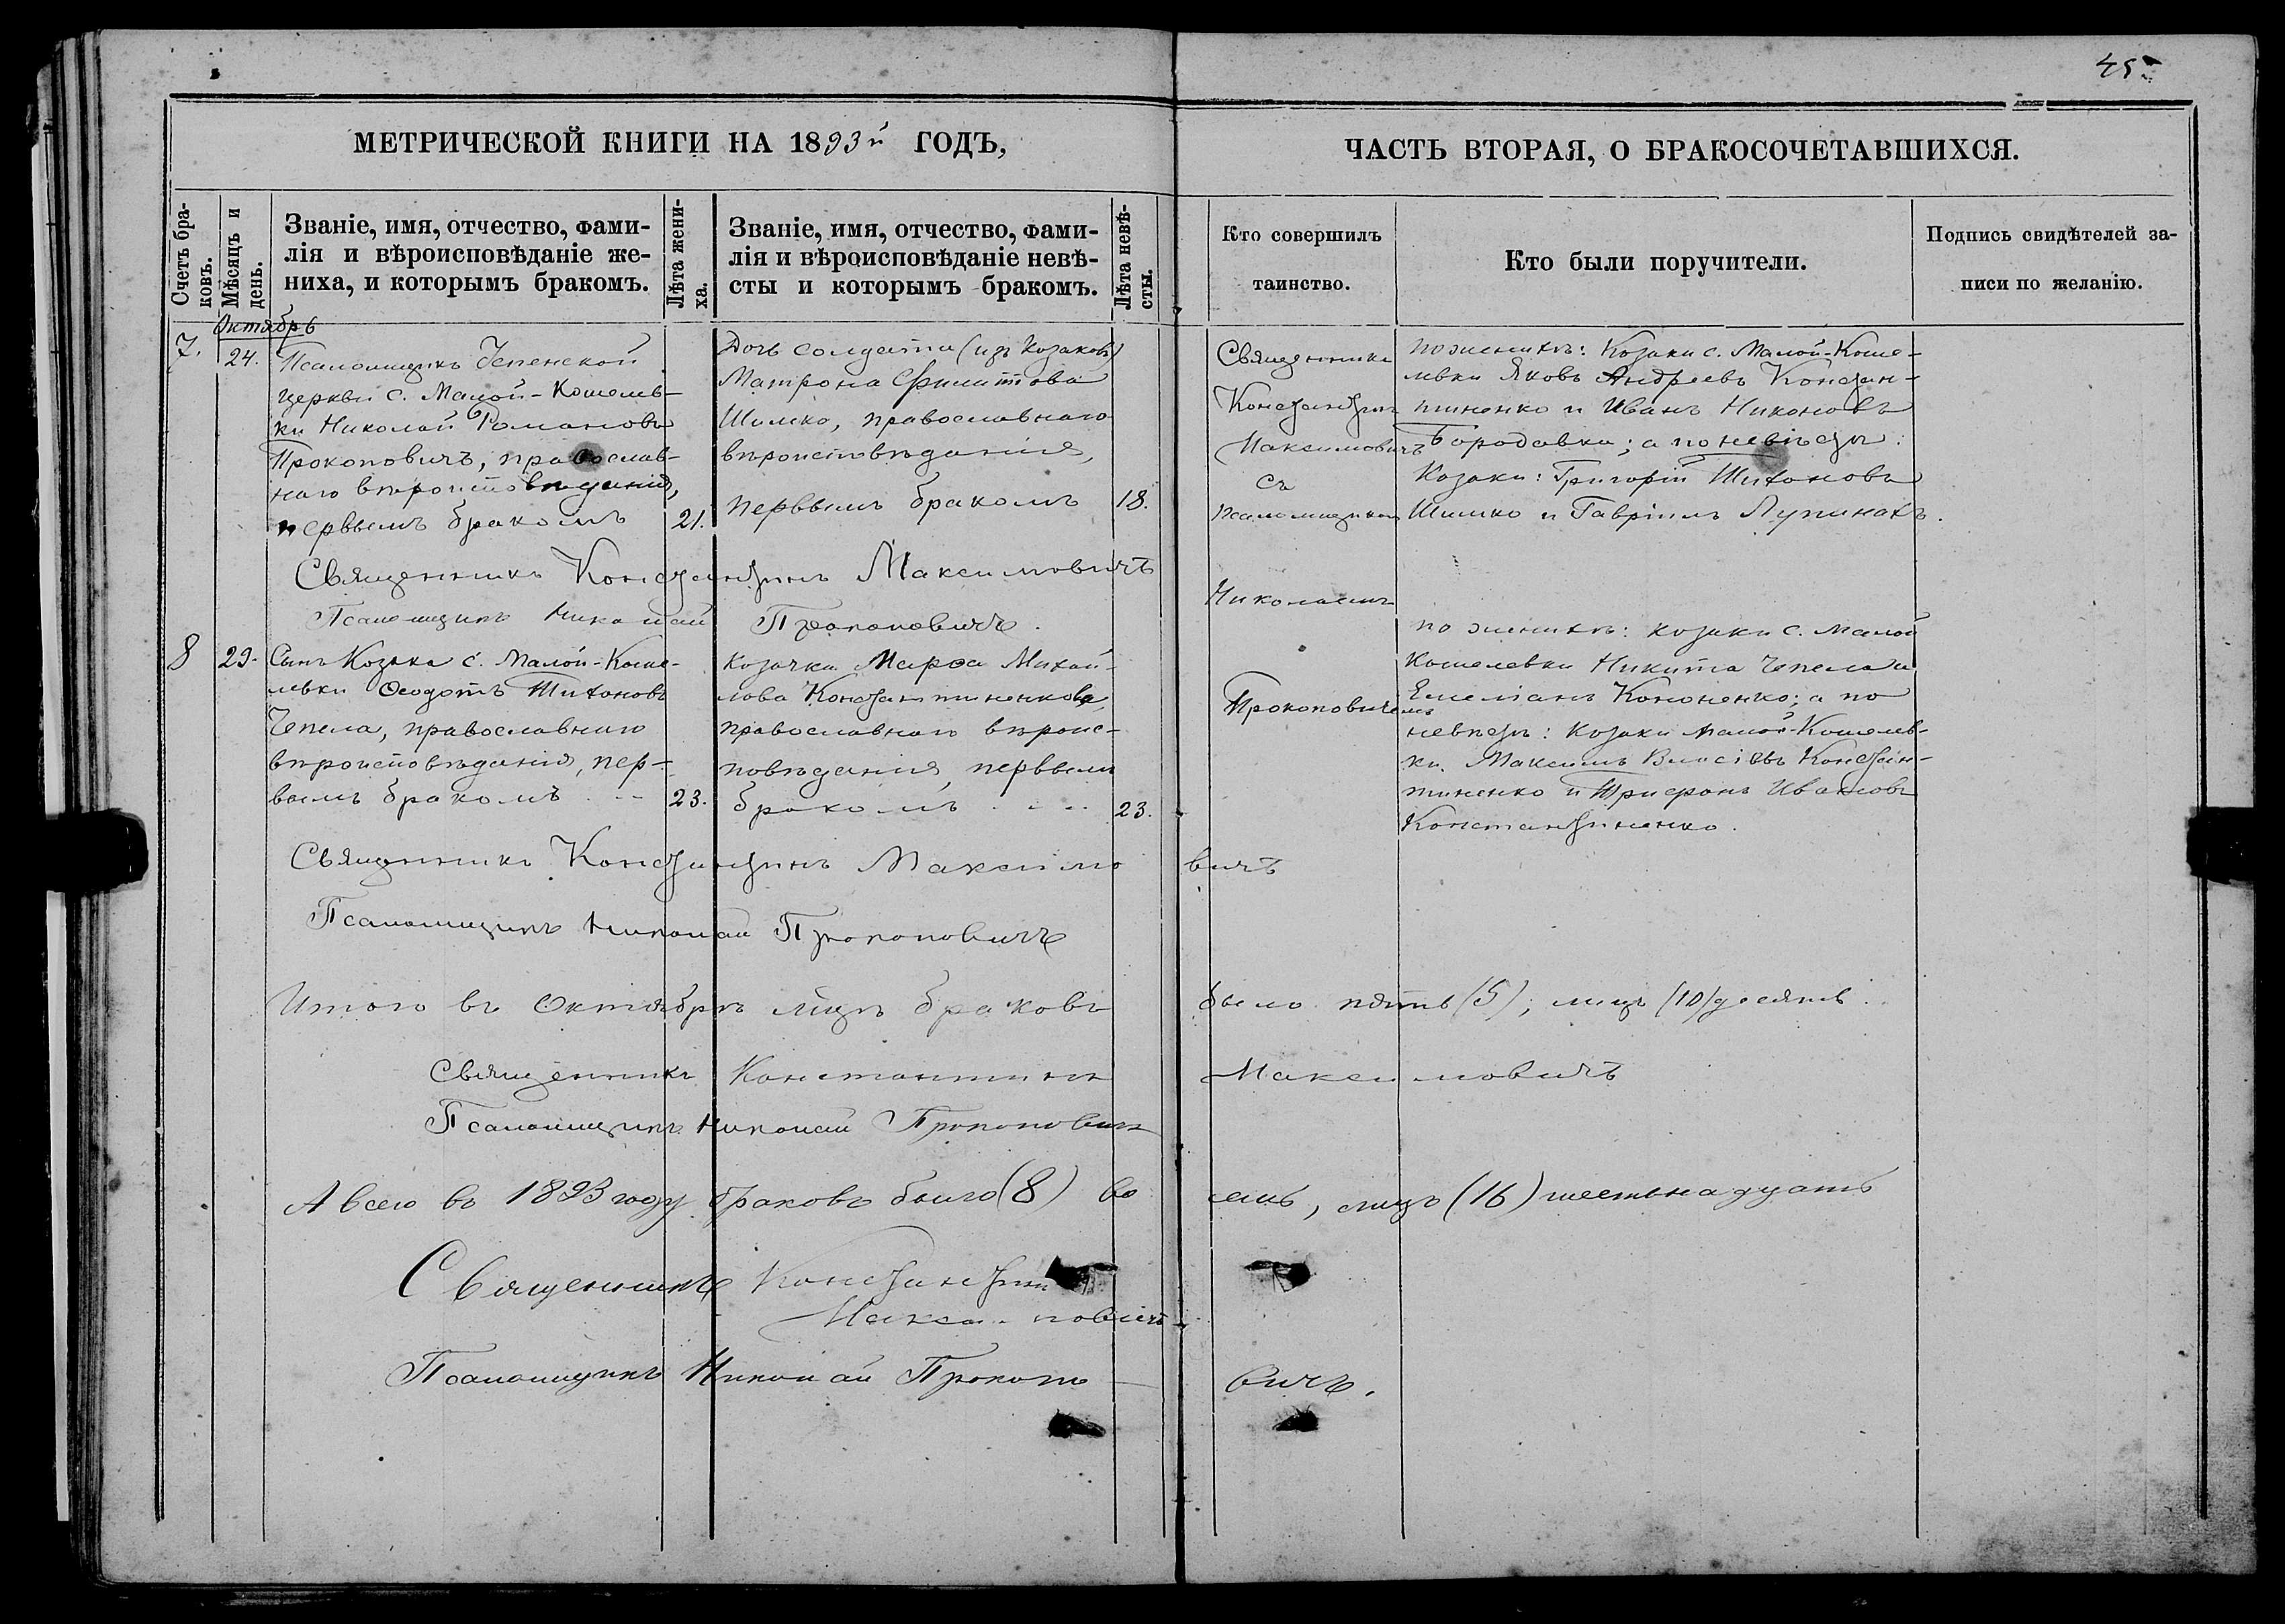 45
МЕТРИЧЕСКОЙ КНИГИ НА 1893й ГОДЪ,
ЧАСТЬ ВТОРАЯ, О БРАКОСОЧЕТАВШИХСЯ.
Счетъ бра-
ковъ.
Мѣсяцъ и
день.
Званіе, имя, отчество, фами-
лія и вѣроисповѣданіе же-
ниха, и которымъ бракомъ.
Лѣта жени-
ха.
Званіе, имя, отчество, фами-
лія и вѣроисповѣданіе невѣ-
сты и которымъ бракомъ.
Лѣта невѣ-
сты.
Кто совершилъ
таинство.
Кто были поручители.
Подпись свидѣтелей за-
писи по желанію.
Октябрь
7.
24.
Псаломщикъ Успенской
церкви с. Малой-Кошелев-
ки Николай Романовъ
Прокоповичъ, православ-
наго вѣроисповѣданія,
первымъ бракомъ
21.
Дочь солдата (изъ Козаковъ)
Матрона Филиппова
Шимко, православнаго
вѣроисповѣданія,
первымъ бракомъ
18.
Священникъ
Константинъ
Максимовичъ
съ
псаломщикомъ
Николаемъ
Прокоповичемъ
по женихѣ: Козаки с. Малой-Коше-
левки Яковъ Андреевъ Констан-
тиненко и Иванъ Никоновъ
Бородавка; а по невѣстѣ:
Козаки: Григорій Тихоновъ
Шимко и Гавріилъ Лупиносъ.
Священникъ Константинъ Максимовичъ
Псаломщикъ Николай Прокоповичъ.
8
29.
Сынъ Козака с. Малой-Коше-
левки Ѳеодотъ Тихоновъ
Чепела, православнаго
вѣроисповѣданія, пер-
вымъ бракомъ
23.
Козачка Марѳа Михай-
лова Константиненкова,
православнаго вѣроис-
повѣданія, первымъ
бракомъ
23.
по женихѣ: козаки с. Малой
Кошелевки Никита Чепела и
Емеліанъ Кононенко; а по
невѣстѣ: Козаки Малой-Кошелев-
ки Максимъ Власіевъ Констан-
тиненко и Трифонъ Ивановъ
Константиненко.
Священникъ Константинъ Максимовичъ
Псаломщикъ Николай Прокоповичъ
Итого въ Октябрѣ мцѣ браковъ было пять (5); лицъ (10) десять.
Священникъ Константинъ Максимовичъ
Псаломщикъ Николай Прокоповичъ
А всего въ 1893 году браковъ было (8) восемь, лицъ (16) шестьнадцать
Священникъ Константинъ
Максимовичъ
Псаломщикъ Николай Прокоповичъ.